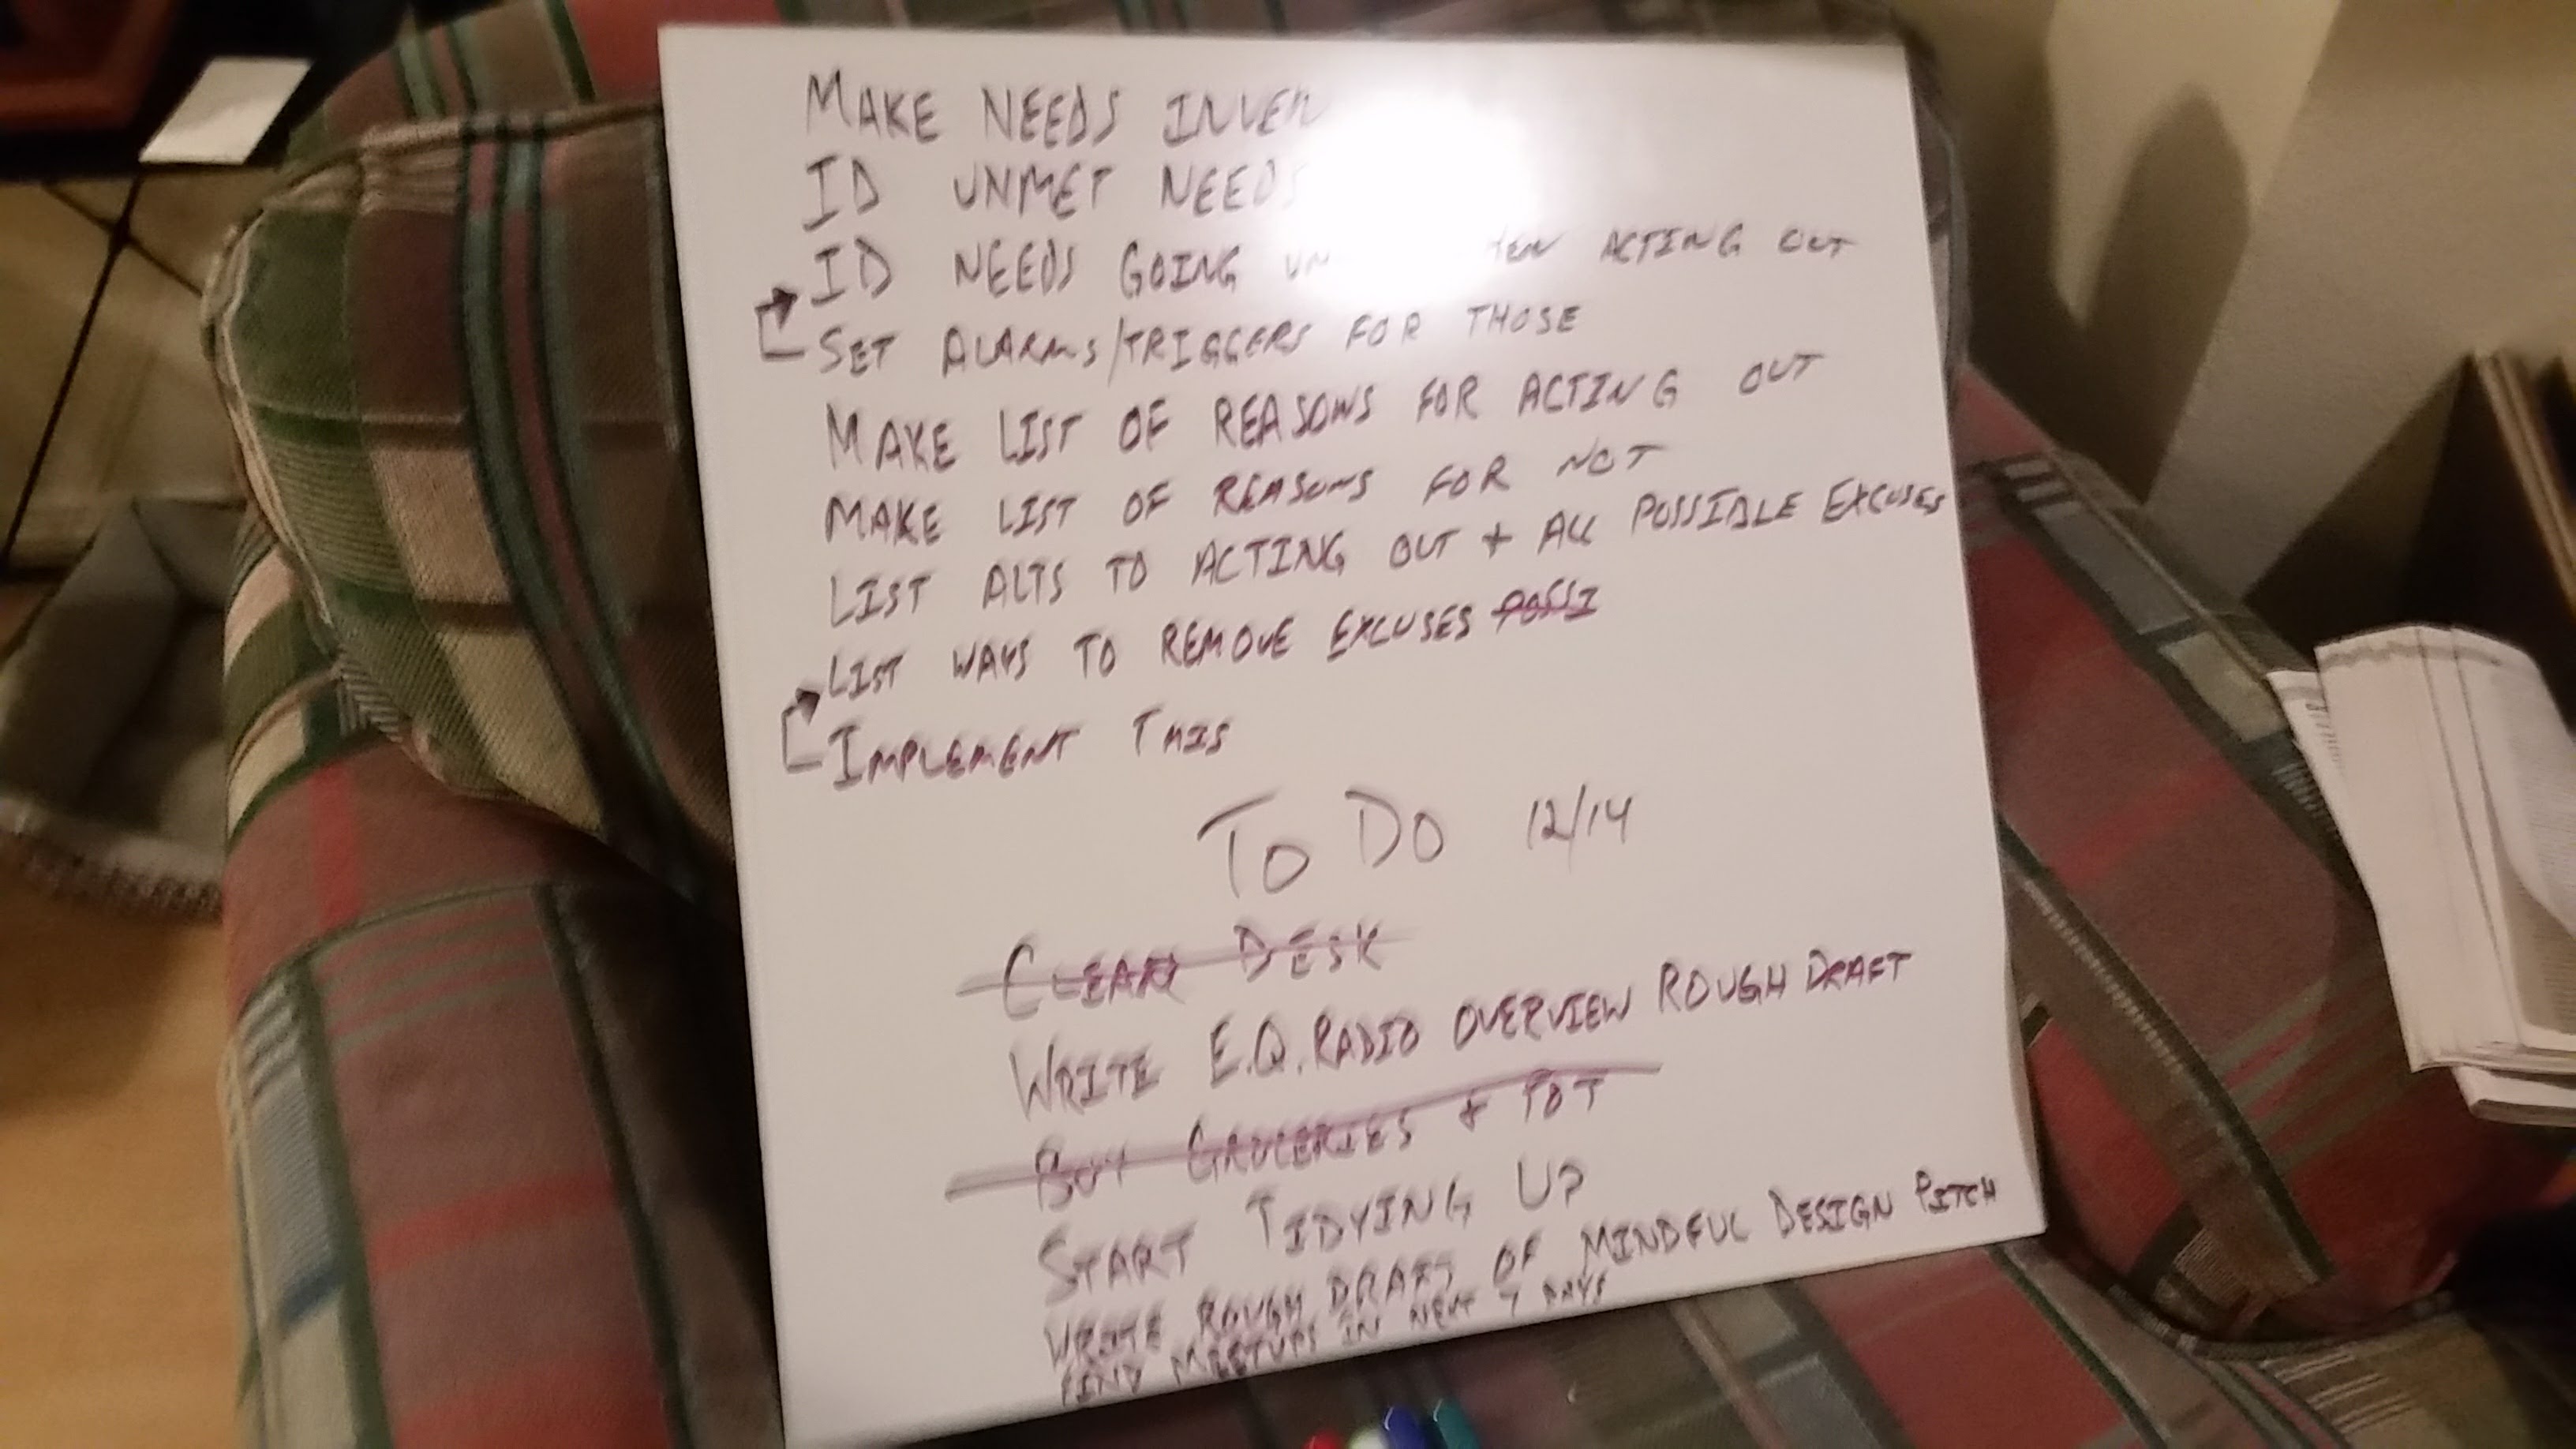 MAKE NEEDS INVEN
ID UNMET NEEDS
ID NEEDS GOING UN HEN ACTING OUT
SET ALARMS/TRIGGERS FOR THOSE
MAKE LIST OF REASONS FOR ACTING OUT
MAKE LIST OF REASONS FOR NOT
LIST ALTS TO ACTING OUT + ALL POSSIBLE EXCUSES
LIST WAYS TO REMOVE EXCUSES POSSI
IMPLEMENT THIS
TO DO 12/14
CLEAN DESK
WRITE E.Q. RADIO OVERVIEW ROUGH DRAFT
BUY GROCERIES + POT
START TIDYING UP
WRITE ROUGH DRAFT OF MINDFUL DESIGN PITCH
FIND MEETUPS IN NEXT 7 DAYS